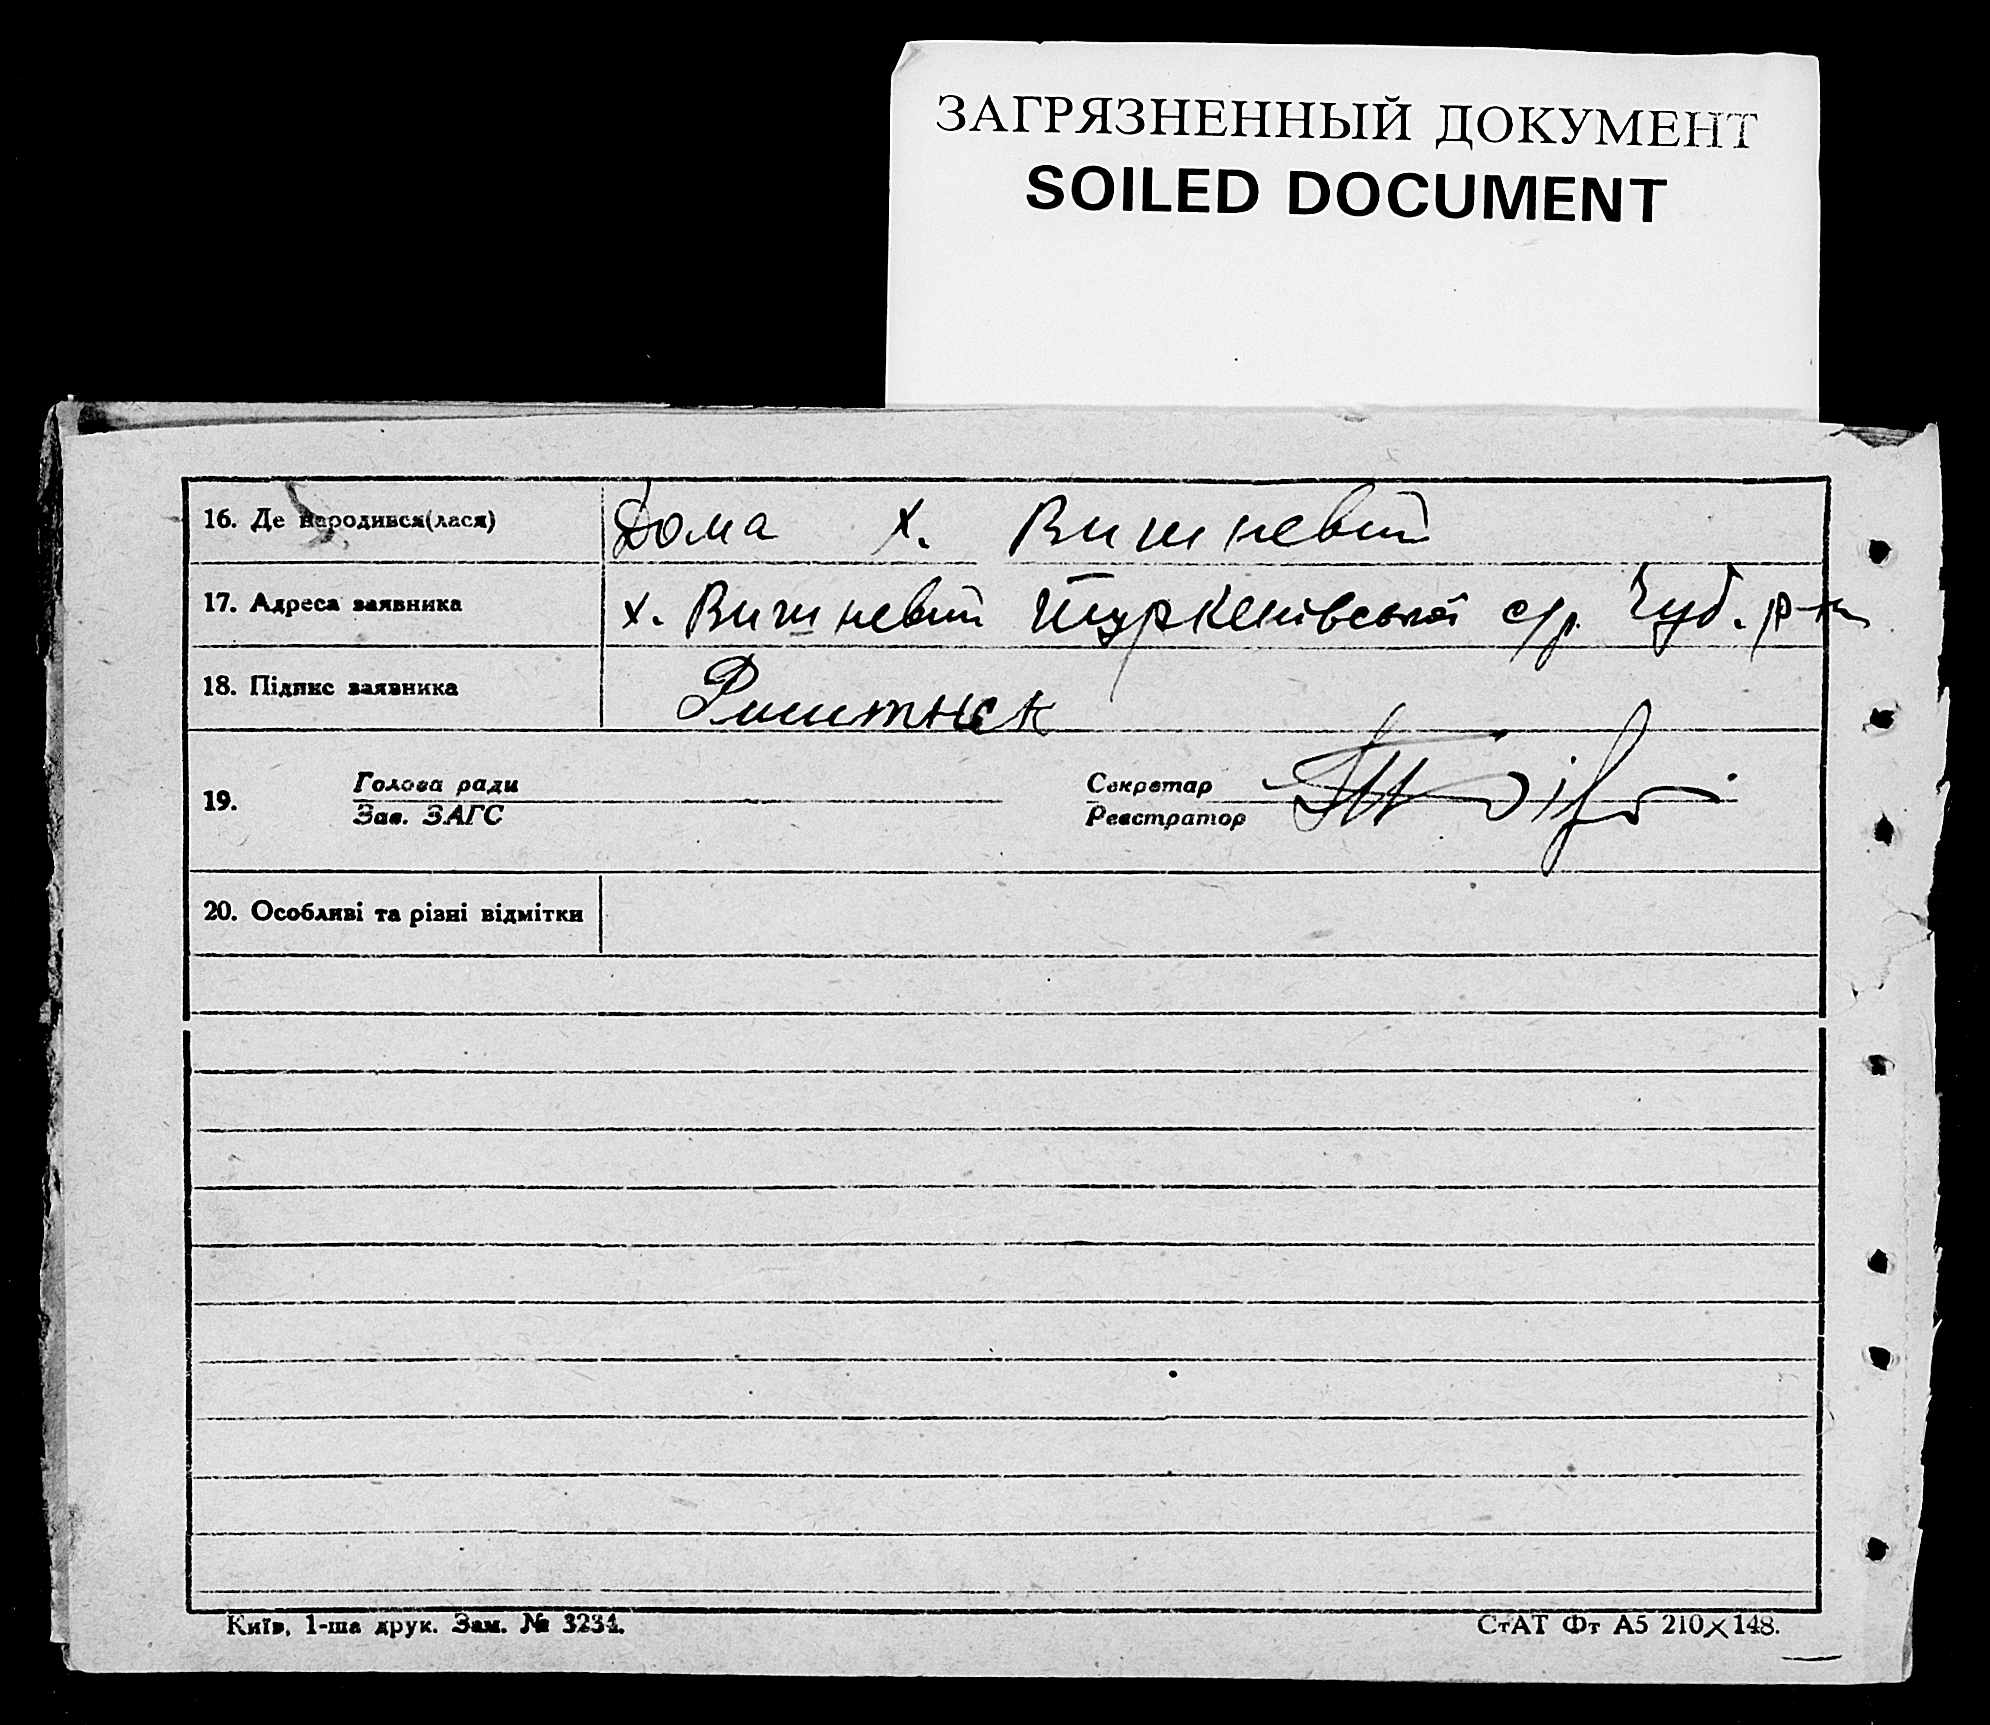 ЗАГРЯЗНЕННЫЙ ДОКУМЕНТ
SOILED DOCUMENT
16. Де народився(лася) Дома х. Вишневий
17. Адреса заявника х. Вишневий с/р. Чуб. р-н
18. Підпис заявника
19. Голова ради Секретар
Зав. ЗАГС Реєстратор
20. Особливі та різні відмітки
Київ, 1-ша друк. Зам. № 3234.
СтАТ Фт А5 210×148.